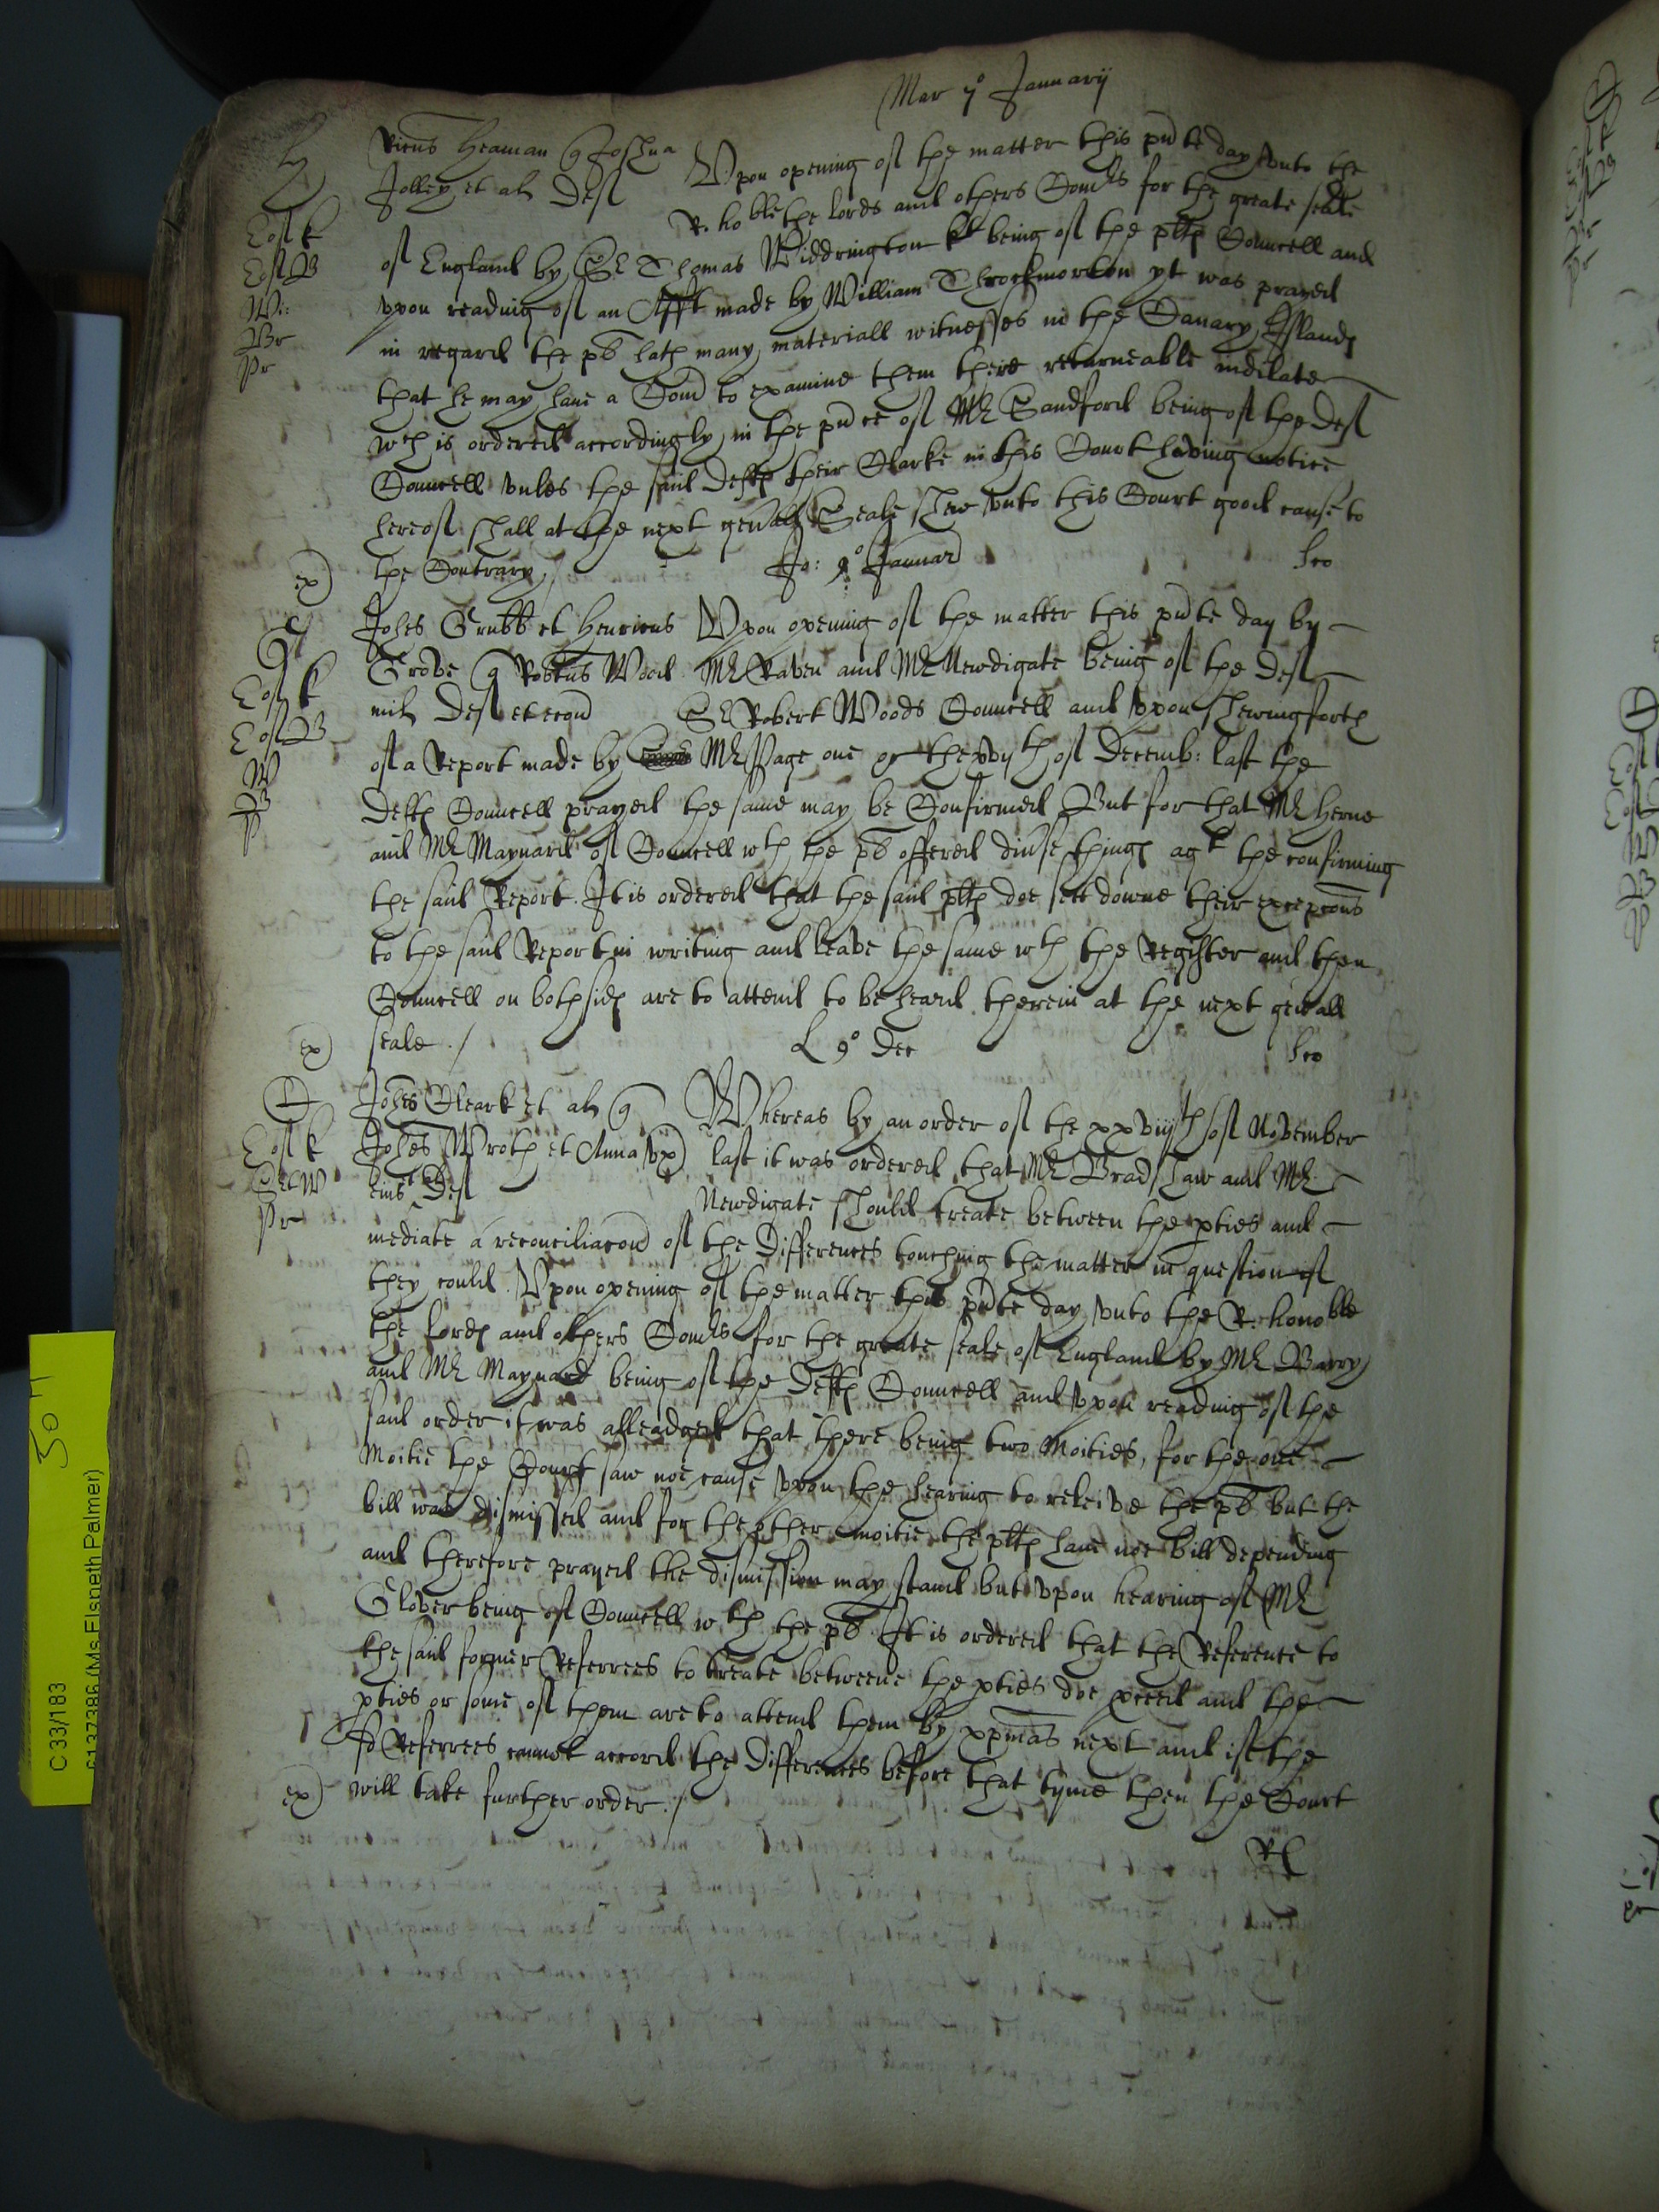 Mar 7° Januarij
Ricus Heaman q Joshua
Jolley et al Deft
Upon opening of the matter this pnte day unto the
R. hoble the lords and others Comrs for the greate seale
of England by Sr Thomas Widdrington kt being of the plts Councell and
upon reading of an Afft made by William Throckmorton yt was prayed
in regard the pl hath many materiall witnesses in the Canary Islands
that he may have a Comn to examine them there retarneable indilate
wch is ordered accordingly in the pnce of Mr Sandford being of the Deft
Councell unles the said Defts their Clarke in this Court having notice
hereof shall at the next genall Seale shew unto this Court good cause to
the Contrary
Jo: 9° Januar
ex)
Johes Grubb et Henricus
Grove q Robtus Wood
mil Deft et econ
Upon opening of the matter this pnte day by
Mr Raven and Mr Newdigate being of the Deft
Sr Robert Woods Councell and upon shewing forth
of a Report made by Mr Page one of the xvijth of Decemb: last the
Defts Councell prayed the same may be Confirmed But for that Mr Herne
and Mr Maynard of Councell wth the pl offered divse things agt the confirming
the said Report. It is ordered that the said plts doe sett downe their excepcons
to the said Report in writing and leave the same wth the Register and then
Councell on both sids are to attend to be heard therein at the next genall
seale ./
L 9° Dec
ex)
Johes Cleark et al q
Johes Wroth et Anna ux)
eius Deft
Whereas by an order of the xxviijth of November
last it was ordered that Mr Bradshaw and Mr
Newdigate should treate between the pties and
mediate a reconciliacon of the Differences touching the matter in question if
they could. Upon opening of the matter this pnte day unto the R. honoble
the Lords and others Comrs for the greate seale of England by Mr Barry
and Mr Maynard being of the Defts Councell and upon reading of the
said order it was alleadged that there being two Moities, for the one
Moitie the Court saw noe cause upon the hearing to releive the pl but the
bill was dismissed and for the other moitie the plts have noe bill depending
and therefore prayed the dismission may stand but upon hearing of Mr
Glover being of Councell wth the pl It is ordered that the Reference to
the said former Referrees to treate betweene the pties doe pceed and the
pties or some of them are to attend them by xpmas next and if the
sd Referrees cannot accord the Differences before that tyme then the Court
ex) will take further order ./
C 33/183
(Ms Elspeth Palmer)